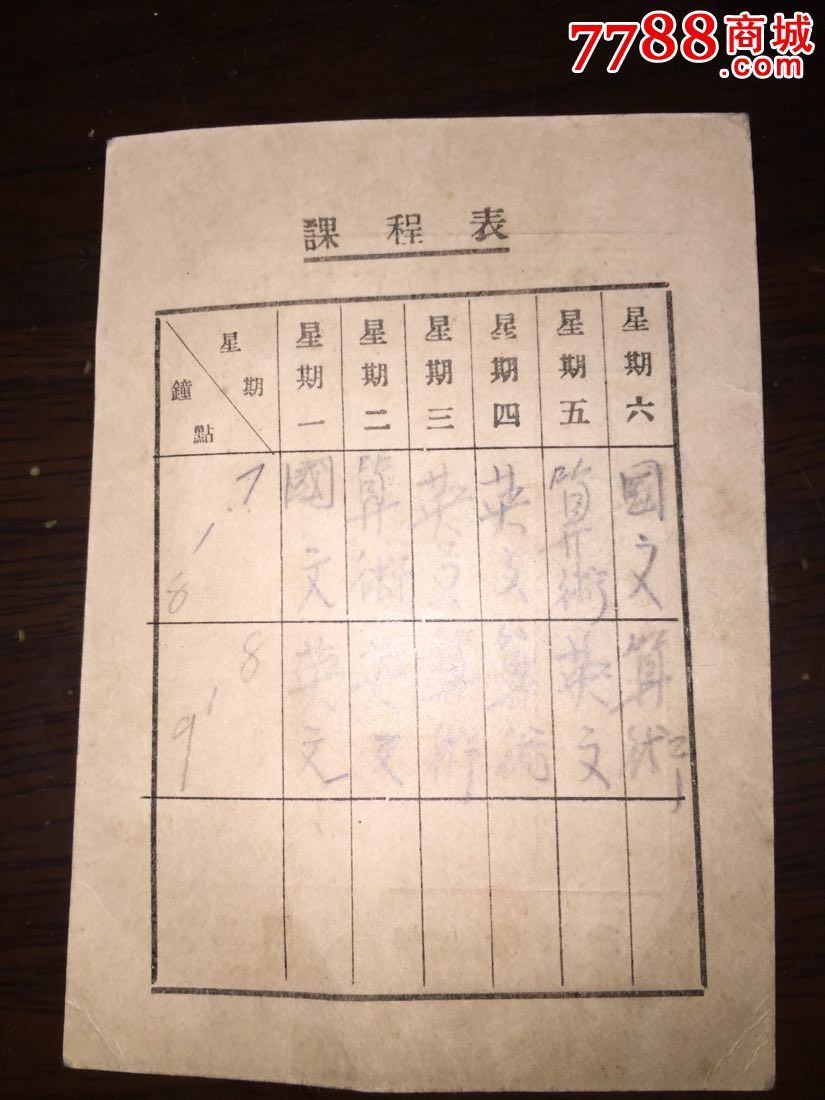 7788商城
.com
課程表
星期 鐘點 星期一 星期二 星期三 星期四 星期五 星期六
7-8 國文 算術 英文 英文 算術 國文
8-9 英文 英文 算術 算術 英文 算術